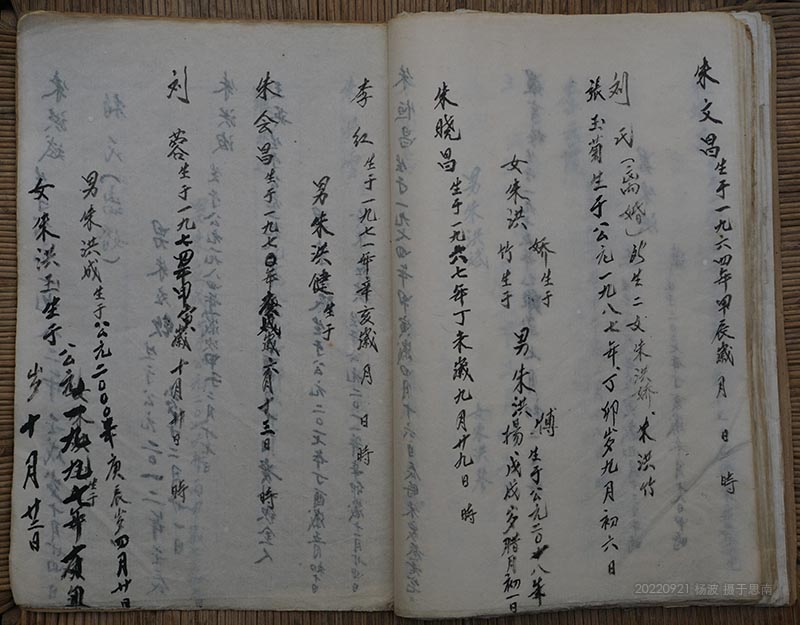 朱文昌生于一九六四年甲辰歲 月 日 時
刘 氏(离婚)所生二女朱洪娇、朱洪竹
張玉菊生于公元一九八七年、丁卯岁九月初六日
女朱洪 娇生于
竹生于
男朱洪 博生于公元二0一八年
揚、戊戌岁腊月初一日
朱晓昌生于一九六七年丁未歲九月廿九日 時
李 红生于一九七一年辛亥歲 月 日 時
男朱洪健生于
朱会昌生于一九七0年 歲六月十三日 時
刘 蓉生于一九七四年甲寅歲十月廿二日 時
男朱洪成生于公元二000年庚辰岁四月廿日
女朱洪玉生于公元一九九七年
岁十月廿三日
20220921 杨波 摄于思南